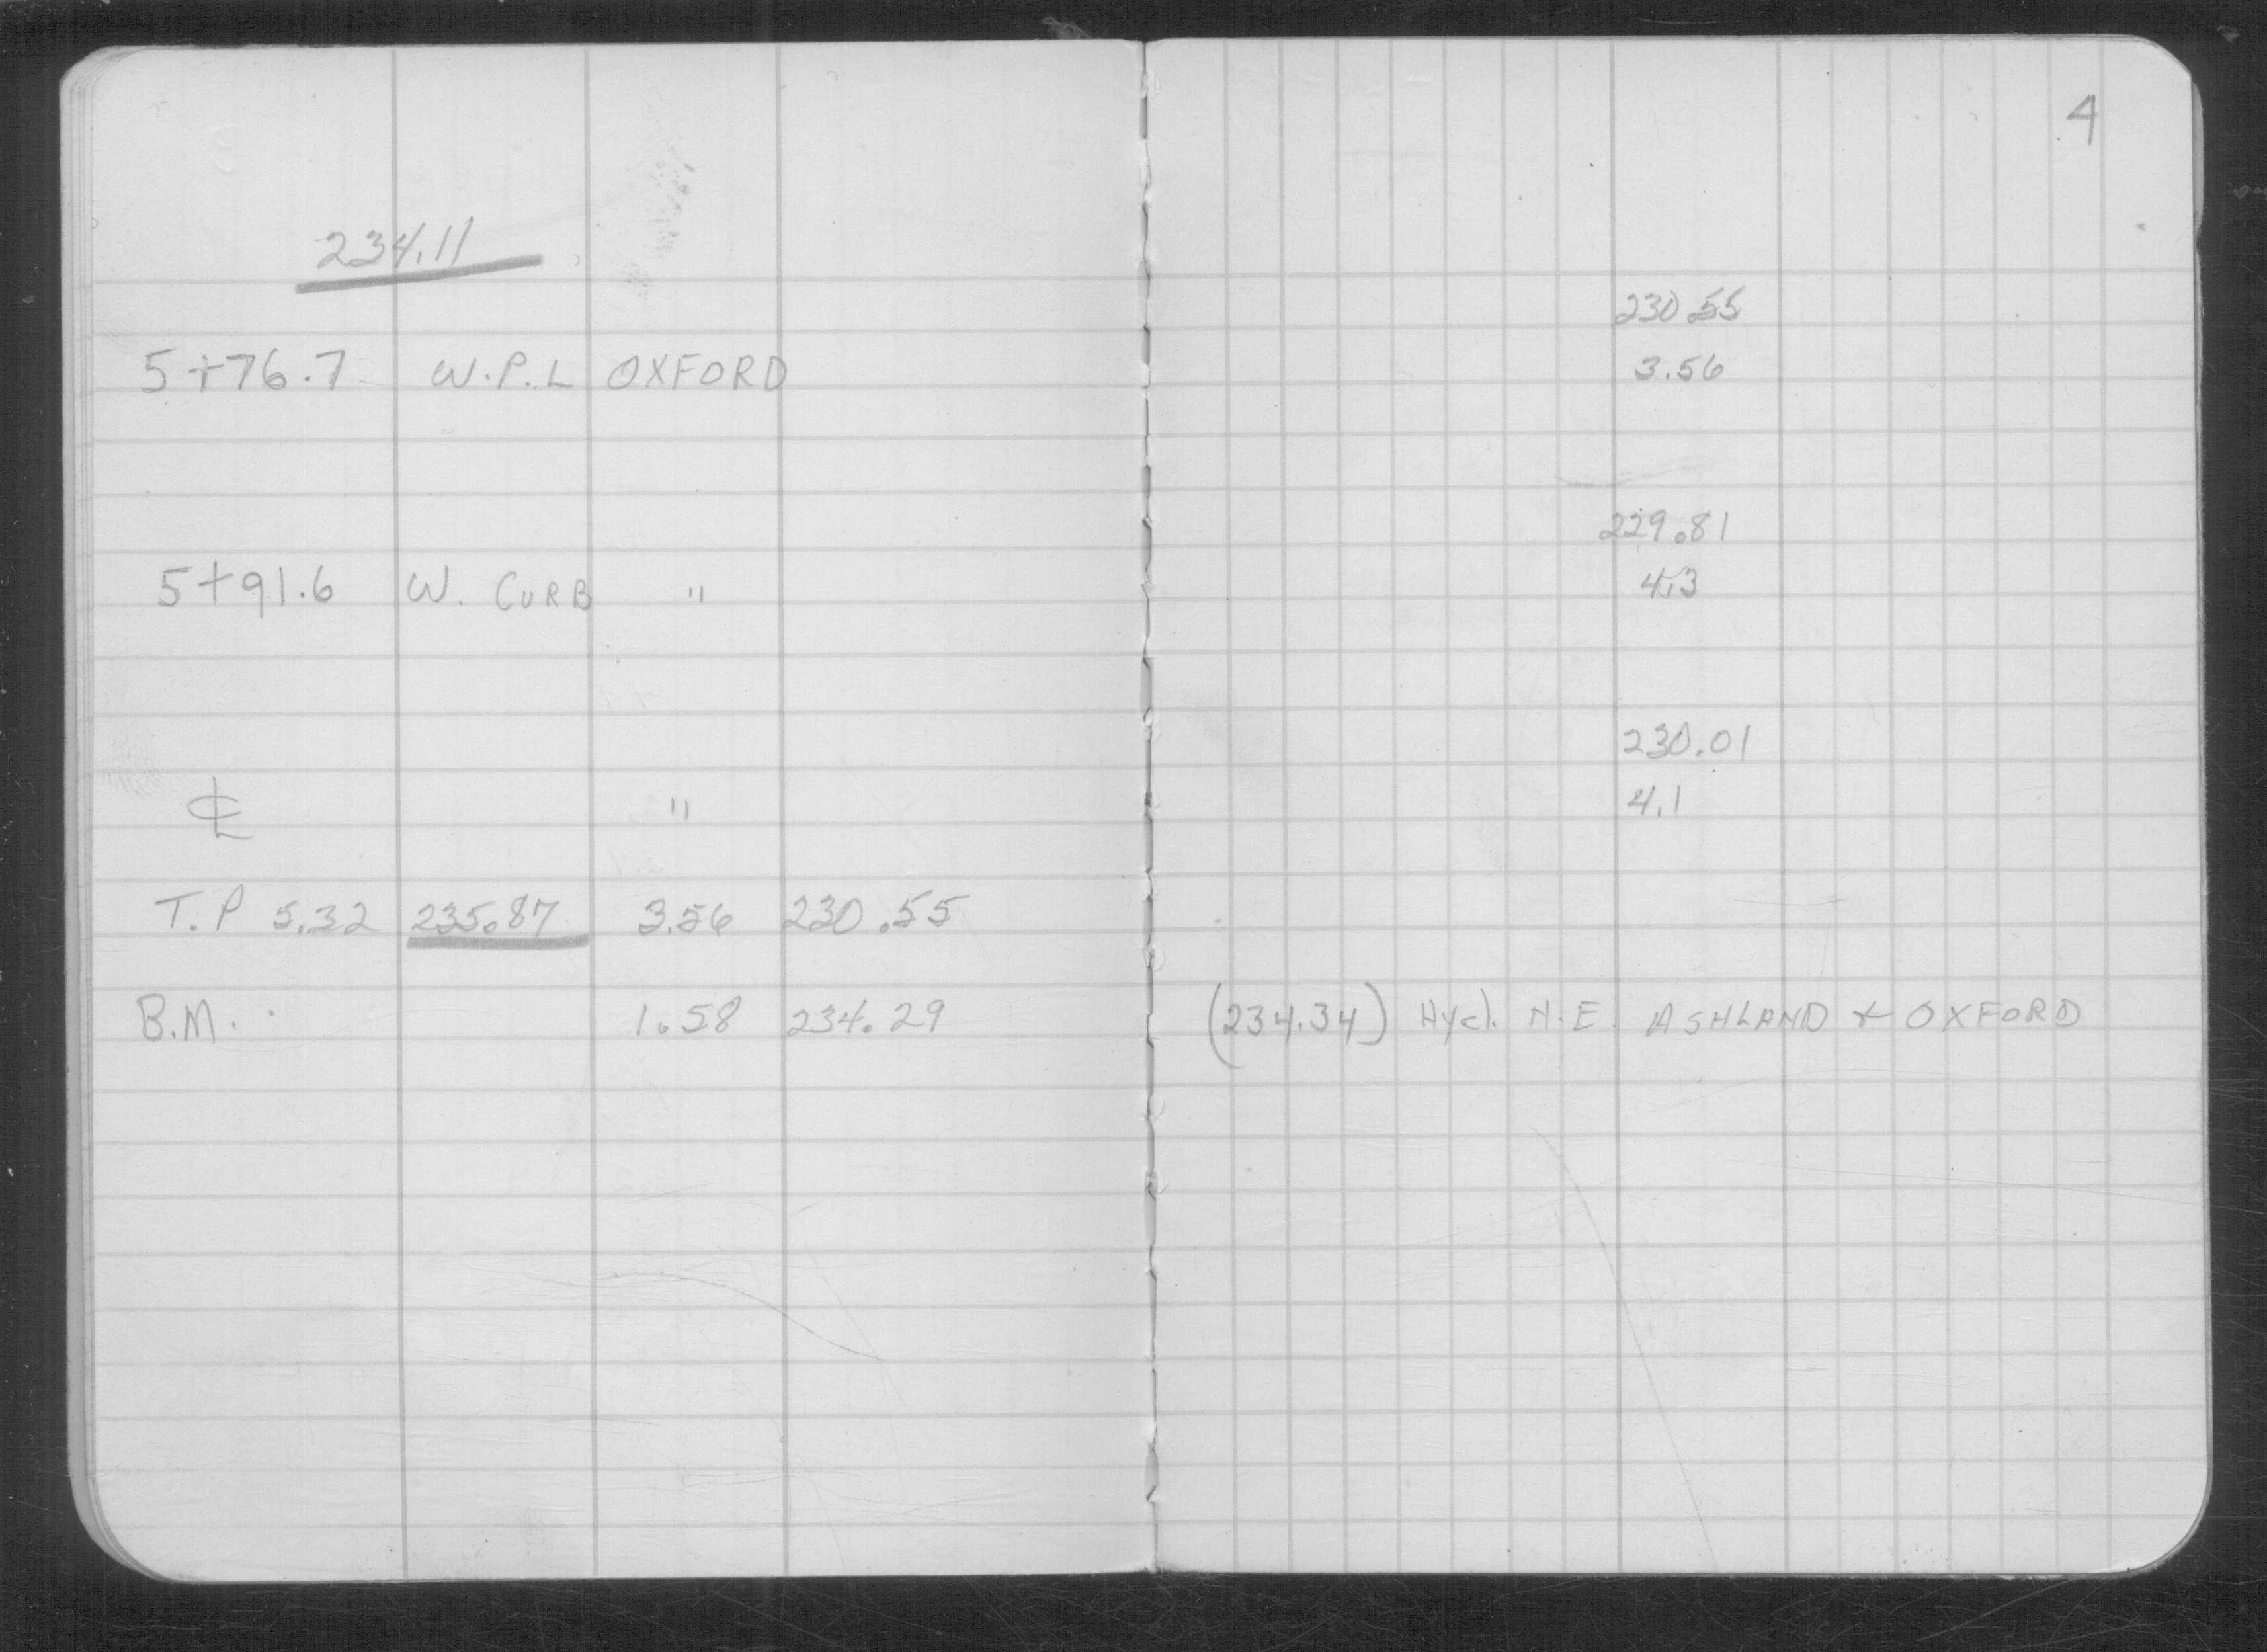 4
234.11
230.55
5+76.7 W.P.L OXFORD 3.56
229.81
5+91.6 W. CURB " 4.3
230.01
℄ " 4.1
T.P 5.32 235.87 3.56 230.55
B.M. 1.58 234.29 (234.34) Hyd. N.E. ASHLAND & OXFORD